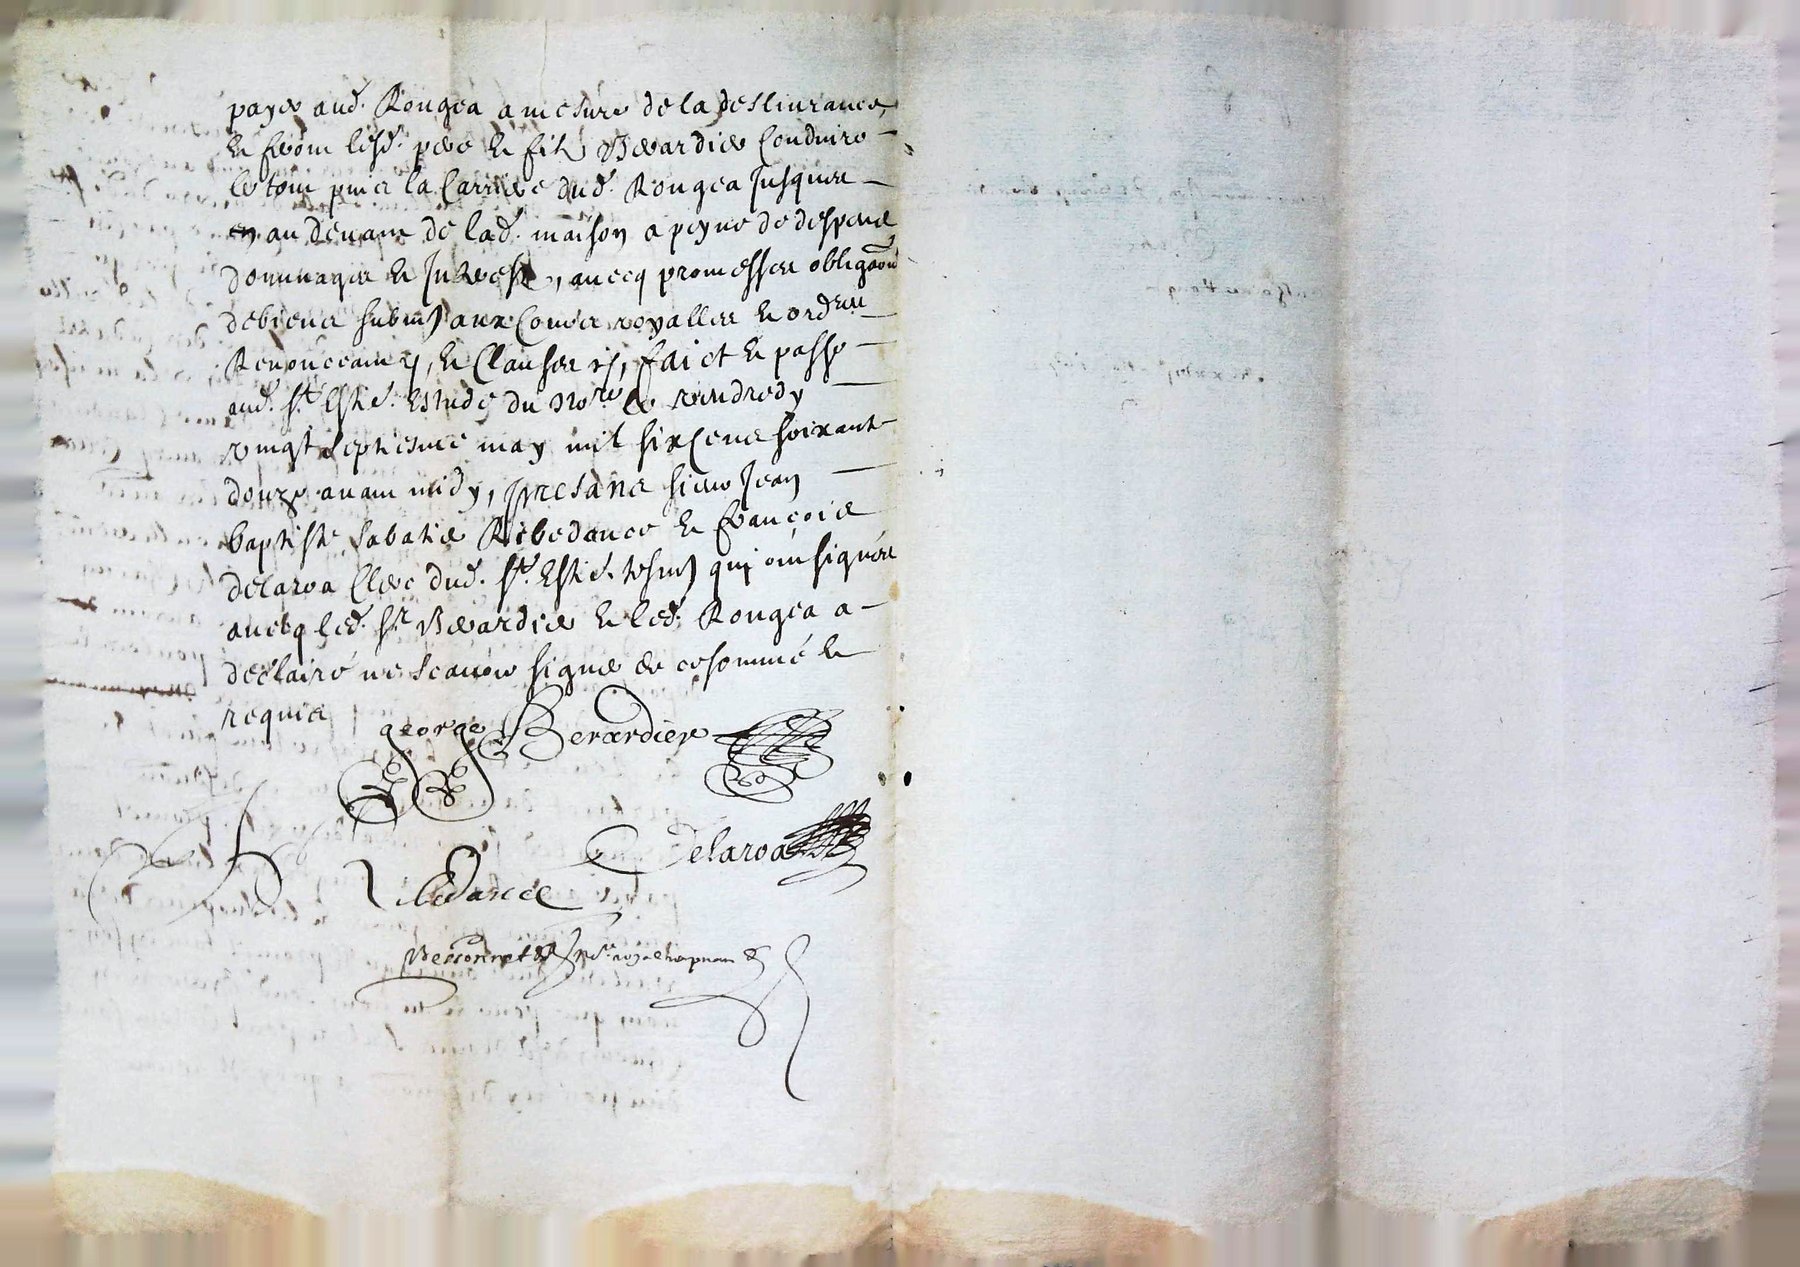 payer aud. Rougea a mesure de la desliurance
& feront lesd. pere & filz Berardier Conduire
le tout pour la Carriere dud. Rougea Jusques
en au deuant de lad. maison a peyne de despens
dommages & Interestz, auecq promesses obligaõn
de biens submis aux Cours royalles & ordres
Renonceans, & Clauses, faict & passe
aud. St Estie. Estude du nore le vendredy
vingt septiesme may mil six Cens soixante
douze auant midy, presans sieur Jean
baptiste Sabatie Ribedance & François
delaroa Clerc dud. St. Estie. tesmns qui ont signés
auecq led. Sr Berardier & led. Rougea a
declairé ne scauoir signer de ce sommé &
requis
george Berardier
Delaroa